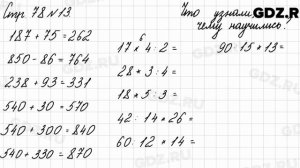 Стр 78 N 13.
187 + 75 = 262
850 - 86 = 764
238 + 93 = 331
540 + 30 = 570
540 + 300 = 840
540 + 330 = 870
6
17 × 4 : 2 =
28 × 3 : 4 =
18 × 5 : 3 =
42 : 14 × 26 =
60 : 12 × 14 =
Что узнали,
чему научились?
90 : 15 × 13 =
GDZ.RU